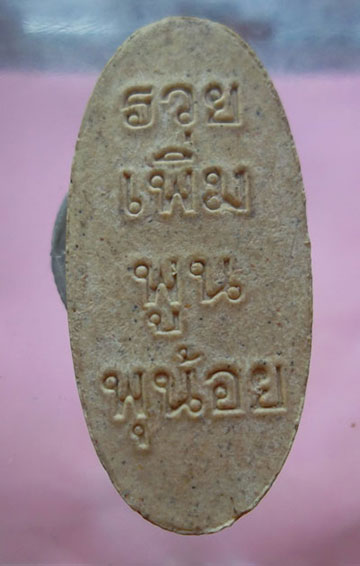 รวย
เพิ่ม
พูน
พุน้อย